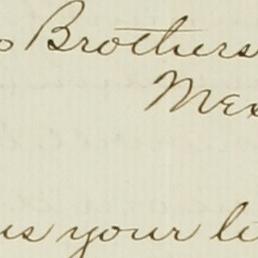 Brothers
Mex
us your li